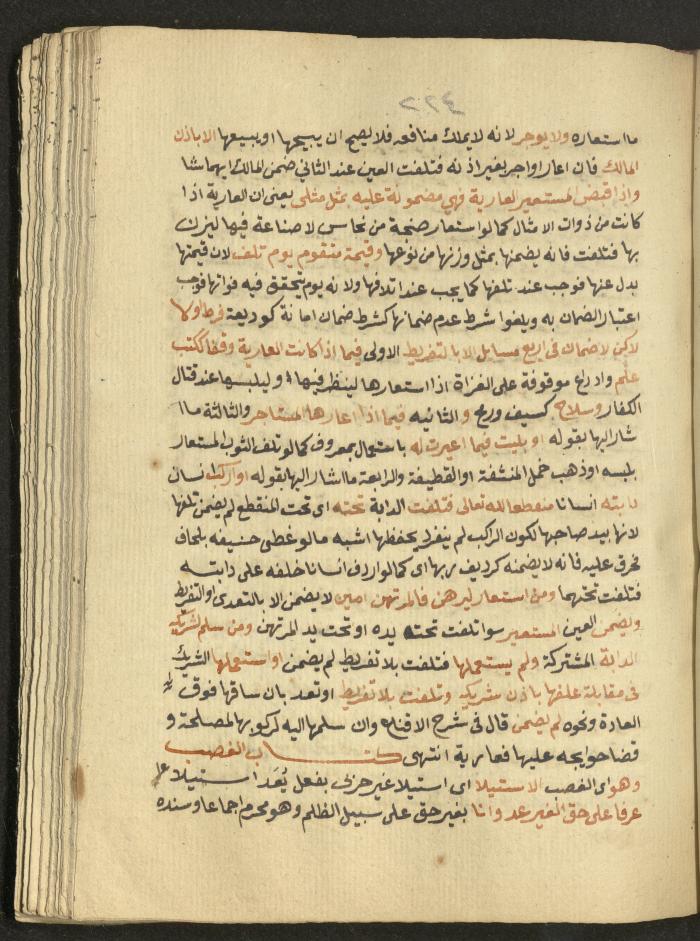 ما استعاره ولا يوجر لانه لا يملك منافعه فلا يصح ان يبيحها او يبيعها الا باذن
المالك فان اعار او اجر بغير اذنه فتلفت العين عند الثاني ضمن المالك ايهما شا
واذا قبض المستعير العارية فهي مضمونة عليه بمثل مثلي يعني ان العارية اذا
كانت من ذوات الامثال كما لو استعار صنجة من نحاس لا صناعة فيها ليزن
بها فتلفت فانه يضمنها بمثل وزنها من نوعها وقيمة متقوم يوم تلف لان قيمتها
بدل عنها فوجب عند تلفها كما يجب عند اتلافها ولانه يوم يتحقق فيه فواتها فوجب
اعتبار الضمان به ويلغوا شرط عدم ضمانها كشرط ضمان امانة كوديعة فرط اولا
لاكن لا ضمان في اربع مسايل الا بالتفريط الاولى فيما اذا كانت العارية وقفا ككتب
علم وادراع موقوفة على الغزاة اذا استعارها لينظر فيها او ليلبسها عند قتال
الكفار وسلاح كسيف ورمح والثانيه فيما اذا اعارها المستاجر والثالثة ما ا
شار اليها بقوله او بليت فيما اعيرت له باستعمال بمعروف كما لو تلف الثوب المستعار
بلبسه او ذهب خمل المنشفة او القطيفة والرابعة ما اشار اليها بقوله او اركب انسان
دابته انسانا منقطعا لله تعالى فتلفت الدابة تحته اي تحت المنقطع لم يضمن تلفها
لانها بيد صاحبها لكون الراكب لم ينفرد بحفظها اشبه ما لو غطى ضيفه بلحاف
فخرق عليه فانه لا يضمنه كرديف ربها اي كما لو اردف انسانا خلفه على دابته
فتلفت تحتهما ومن استعار ليرهن فالمرتهن امين لا يضمن الا بالتعدي او التفريط
ويضمن العين المستعير سوا تلفت تحت يده او تحت يد المرتهن ومن سلم لشريكه
الدابة المشتركة ولم يستعملها فتلفت بلا تفريط لم يضمن او استعملها الشريك
في مقابلة علفها باذن شريكه وتلفت بلا تفريط او تعد بان ساقها فوق
العادة ونحوه لم يضمن قال في شرح الاقناع وان سلمها اليه لركوبها لمصلحة و
قضا حوايجه عليها فعارية انتهى كتاب الغصب
وهو اي الغصب الاستيلا اي استيلا غير حربي بفعل يُعَد استيلا
عرفا على حق الغير عدوانا بغير حق على سبيل الظلم وهو محرم اجماعا وسنده